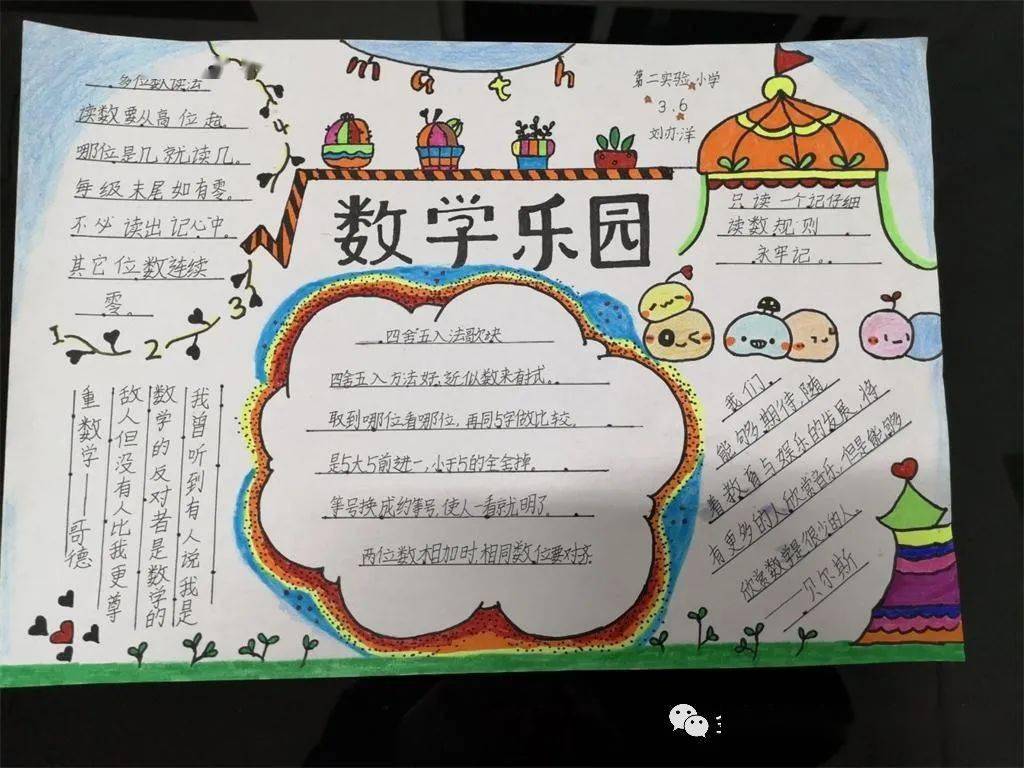 多位数读法
读数要从高位起。
哪位是几就读几。
每级末尾如有零。
不必读出记心中。
其它位数连续
零。
1
2
3
4
math
第二实验小学
3.6
数学乐园
只读一个记仔细
读数规则
永牢记。
四舍五入法歌诀
四舍五入方法好,近似数来有
取到哪位看哪位,再同5字做比较。
是5大5前进一,小于5的全舍掉。
等号换成约等号,使人一看就明了。
两位数相加时,相同数位要对齐
我曾听到有人说我是
数学的反对者是数学的
敌人但没有人比我更尊
重数学——哥德
我们
能够期待,随
着教育与娱乐的发展,将
有更多的人欣赏音乐,但是能够
欣赏数学是很少的人。
——贝尔斯